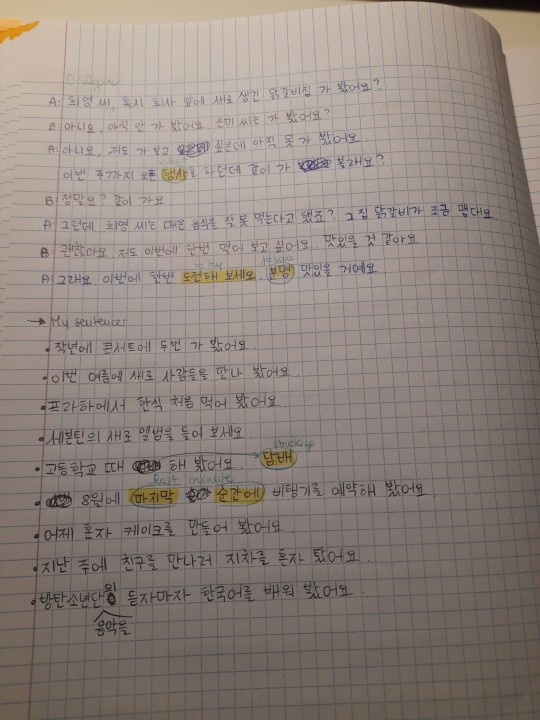 Dialogue
A: 희영 씨, 혹시 회사 앞에 새로 생긴 닭갈비집 가 봤어요?
B: 아니요, 아직 안 가 봤어요. 은미 씨는 가 봤어요?
A: 아니요, 저도 가 보고 싶은데 아직 못 가 봤어요.
이번 주까지 오픈 행사를 하던데 같이 가 볼래요?
B: 정말요? 같이 가요.
A: 그런데 희영 씨는 매운 음식을 잘 못 먹는다고 했죠? 그 집 닭갈비가 조금 맵대요
B: 괜찮아요 저도 이번에 한번 먹어 보고 싶어요. 맛있을 것 같아요
to try
A: 그래요 이번에 한번 도전해 보세요. 분명 맛있을 거예요
→ My sentences
• 작년에 콘서트에 두번 가 봤어요.
• 이번 여름에 새로 사람들을 만나 봤어요.
• 프라하에서 한식 처음 먹어 봤어요.
• 세븐틴의 새로 앨범을 들어 보세요
smoking
• 고등학교 때 해 봤어요. 담배
last minute
• 8월에 마지막 순간에 비행기를 예약해 봤어요.
• 어제 혼자 케이크를 만들어 봤어요.
• 지난 주에 친구를 만나러 지차를 혼자 탔어요.
• 방탄소년단의 듣자마자 한국어를 배워 봤어요.
음악을